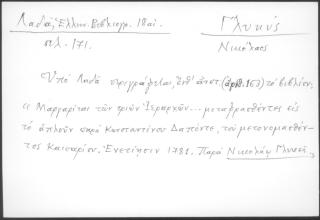 Λαδᾶ, Ἑλλην. Βιβλιογρ. 18 αἰ.
Γλυκύς
σελ. 171.
Νικόλαος
Ὑπὸ Λαδᾶ περιγράφεται, (ἀρθ. 163) τὸ βιβλίον:
οἱ Μαργαρῖται τῶν τριῶν Ἱεραρχῶν... μεταφρασθέντες εἰς
τὸ ἁπλοῦν παρὰ Κωνσταντίνου Δαπόντε, τοῦ μετονομασθέν-
τος Καισαρίου. Ἐνετίησιν 1781. Παρὰ Νικολάῳ Γλυκεῖ.